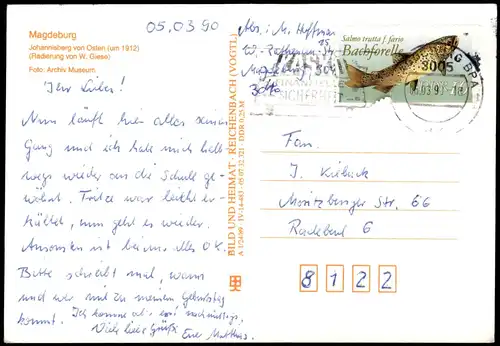 Magdeburg
Johannisberg von Osten (um 1912)
(Radierung von W. Giese)
Foto: Archiv Museum
05.03 90
Ihr Lieben!
Nun läuft hier alles seinen
Gang und ich habe mich halb-
wegs wieder an die Schule ge-
wöhnt. war leicht er-
kältet, nun geht es wieder.
Ansonsten ist bei alles OK.
Bitte schreibt mal, wann
und wir mit zu meinem Geburtstag
kommt. Ich komme
Viele liebe Grüße Euer Matthias
BILD UND HEIMAT · REICHENBACH (VOGTL)
A 1/2499 · IV/14-483 · 05 07 32 321 · DDR 0,25 M
Abs.: M. Hoffmann
W.-Rathenau-Str.
Magdeburg
Salmo trutta f. fario
Bachforelle
3005
MAGDEBURG BPA
SICHERHEIT
Fam.
J.
Moritzburger Str. 66
Radebeul 6
8 1 2 2